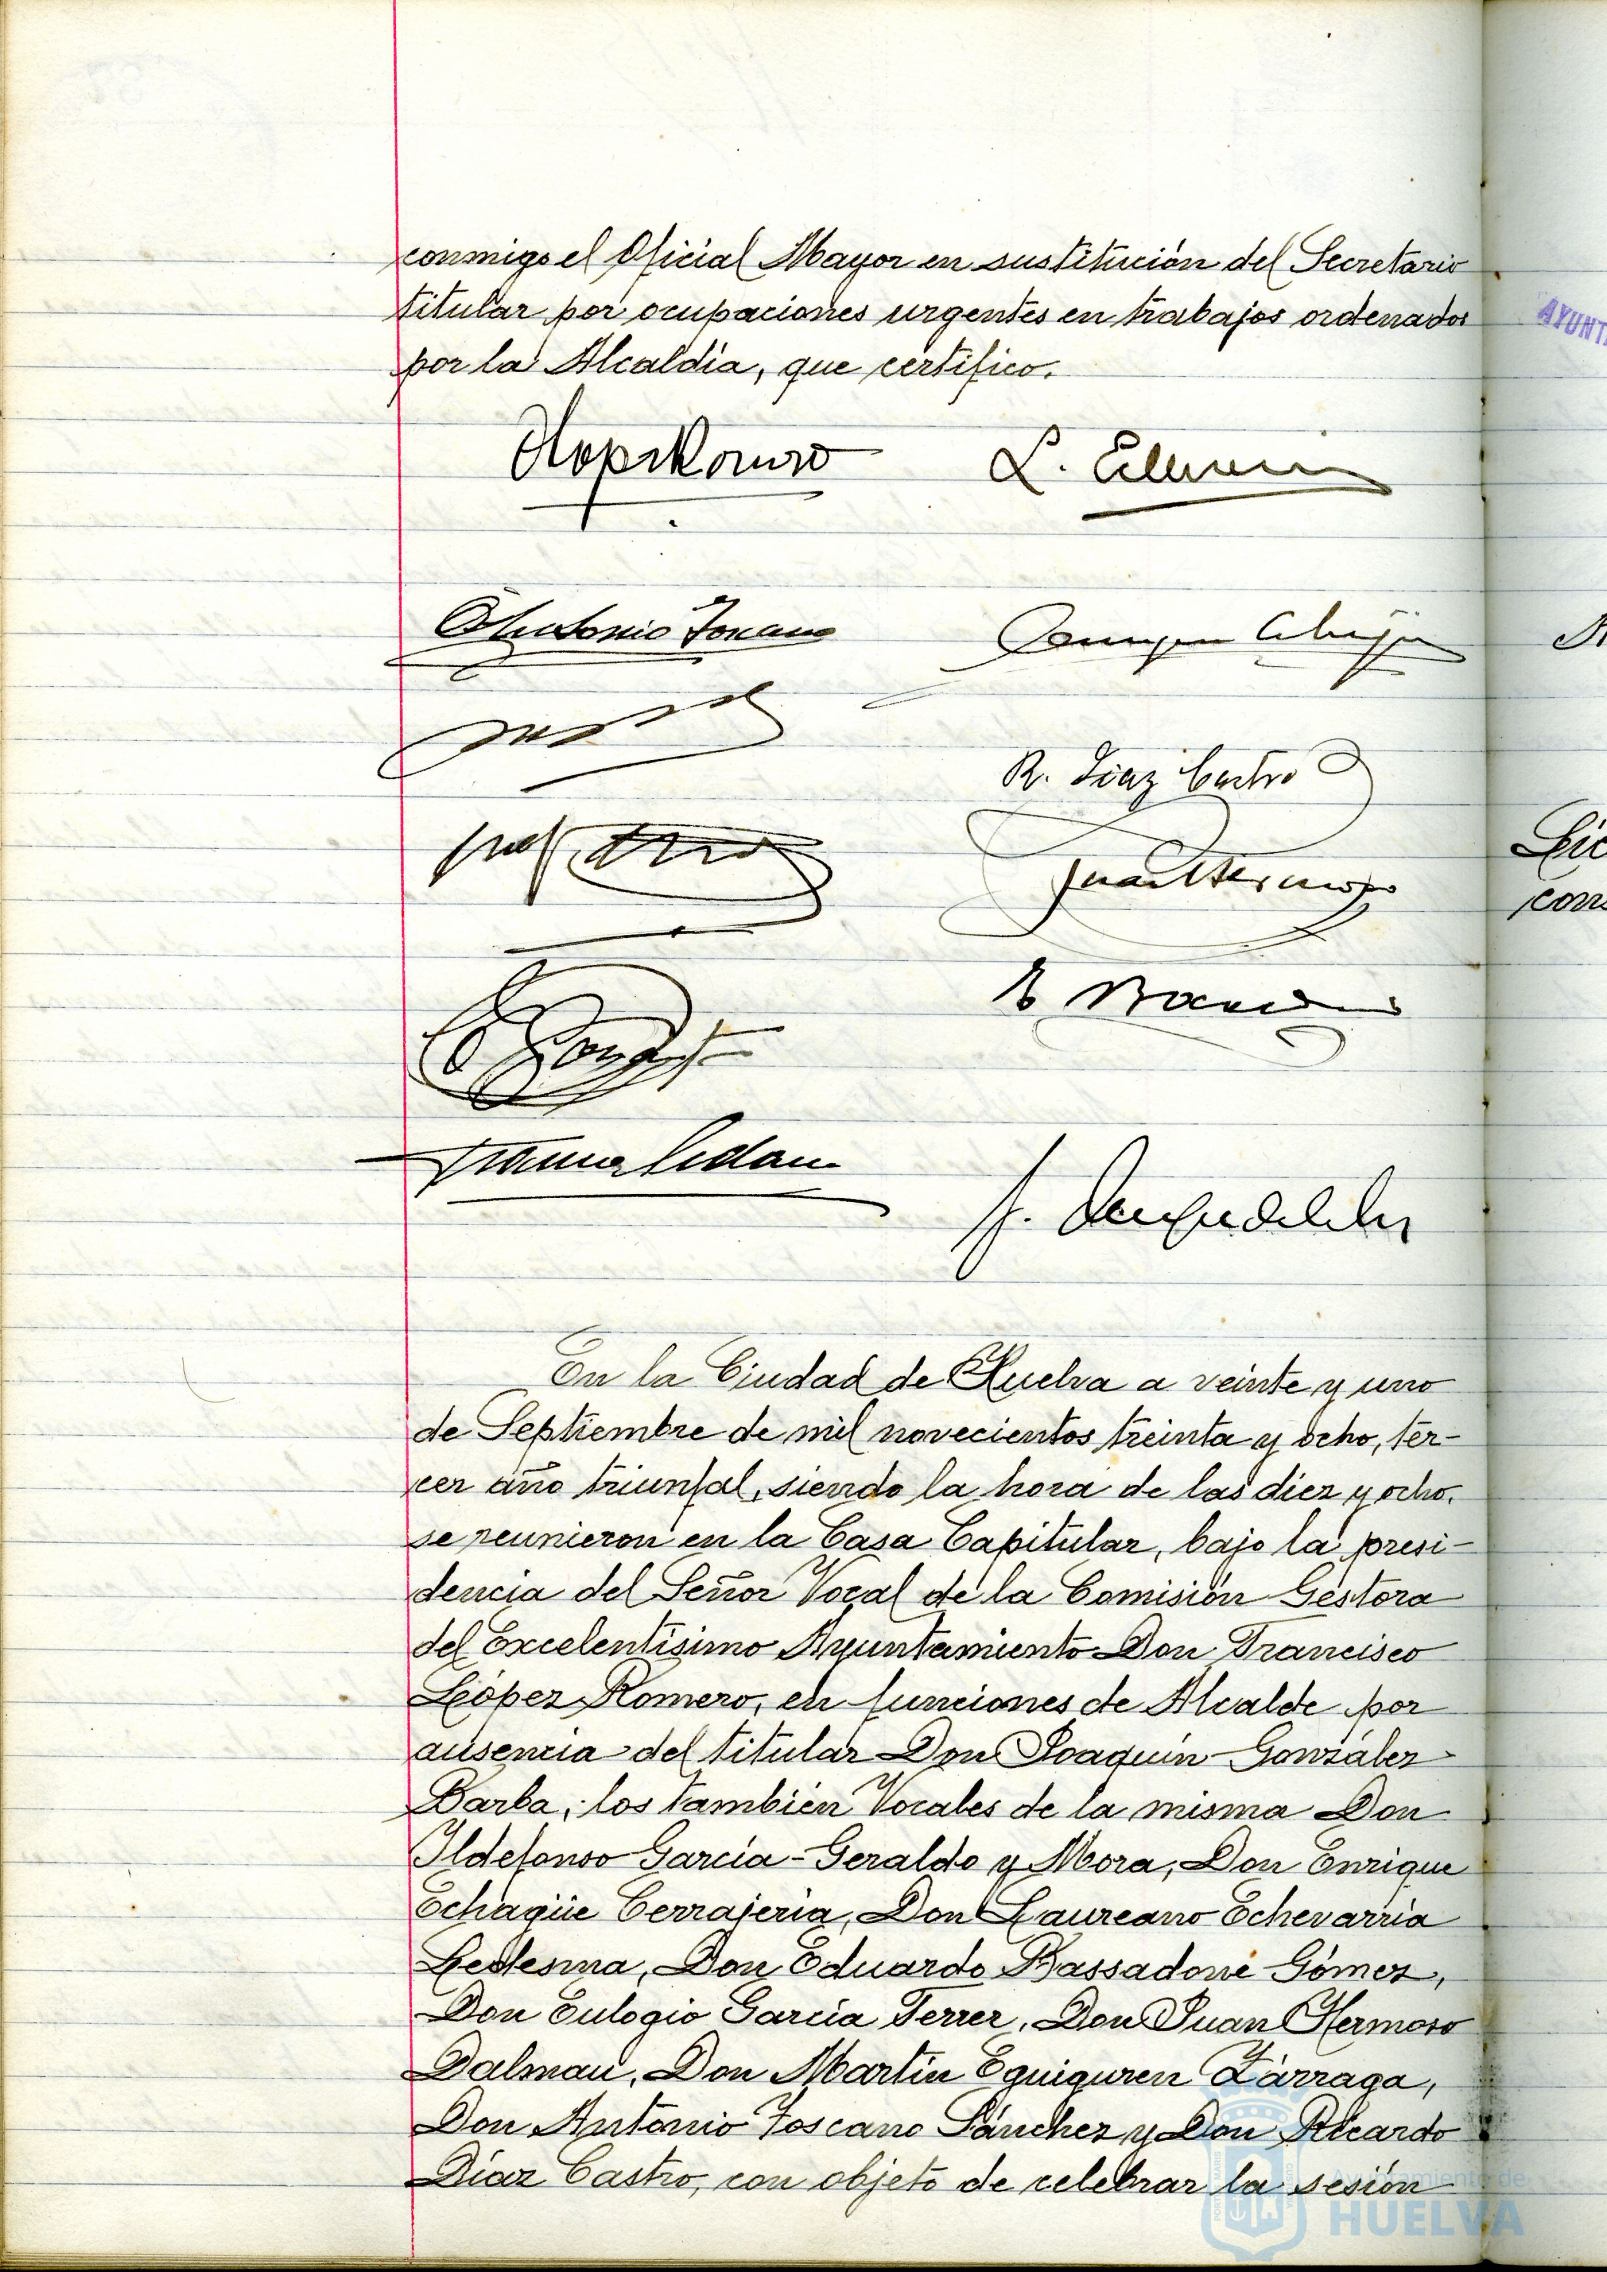 conmigo el Oficial Mayor en sustitución del Secretario
titular por ocupaciones urgentes en trabajos ordenados
por la Alcaldía, que certifico.
L.
Antonio Toscano
R. Díaz Castro
Juan Hermoso
En la Ciudad de Huelva a veinte y uno
de Septiembre de mil novecientos treinta y ocho, ter-
cer año triunfal, siendo la hora de las diez y ocho,
se reunieron en la Casa Capitular, bajo la presi-
dencia del Señor Vocal de la Comisión Gestora
del Excelentísimo Ayuntamiento Don Francisco
López Romero, en funciones de Alcalde por
ausencia del titular Don Joaquín González
Barba; los también Vocales de la misma Don
Ildefonso García-Geraldo y Mora, Don Enrique
Echagüe Cerrajería, Don Laureano Echevarría
Ledesma, Don Eduardo Bassadone Gómez,
Don Eulogio García Ferrer, Don Juan Hermoso
Dalmau, Don Martín Eguiguren Zárraga,
Don Antonio Toscano Sánchez y Don Ricardo
Díaz Castro, con objeto de celebrar la sesión
AYUNT
con
Ayuntamiento de
HUELVA